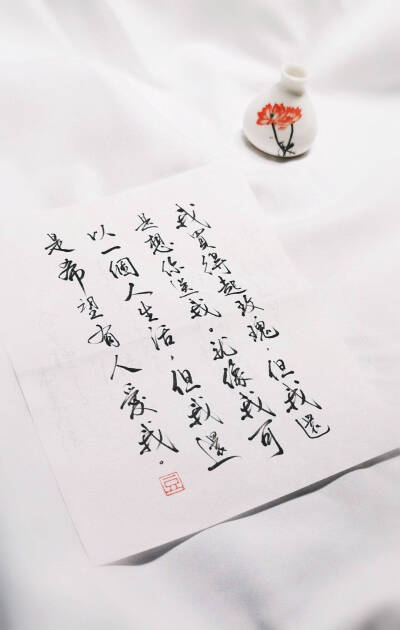 我買得起玫瑰，但我還
是想你送我。就像我可
以一個人生活，但我還
是希望有人愛我。